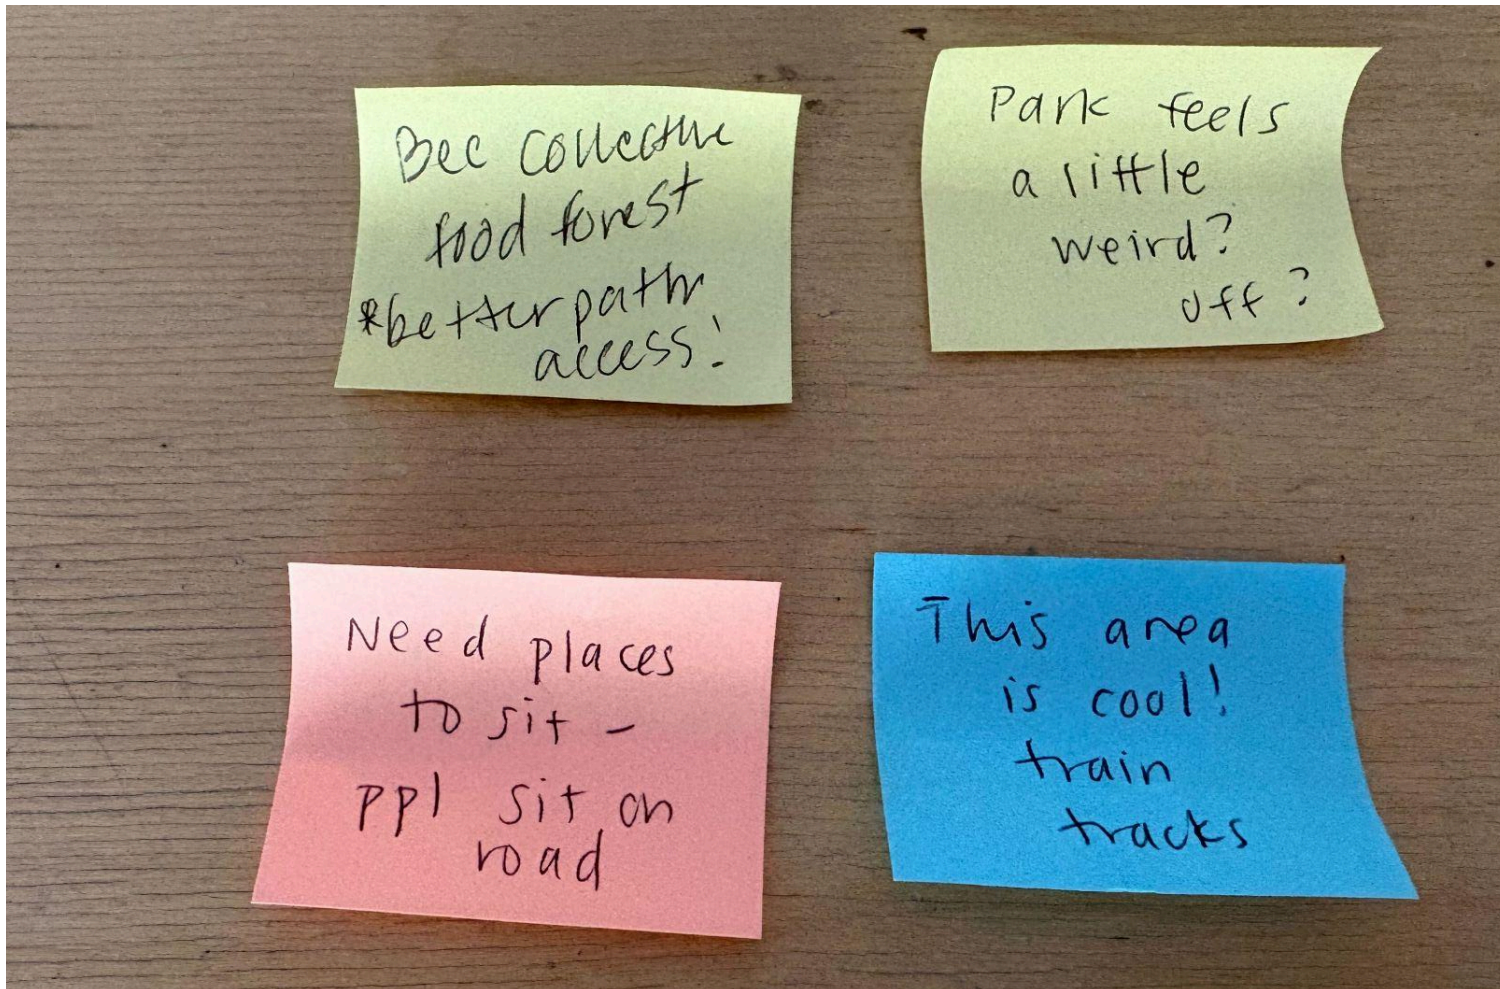 Bee Collective
food forest
*better path
access!
Park feels
a little
weird?
off?
Need places
to sit –
ppl sit on
road
This area
is cool!
train
tracks